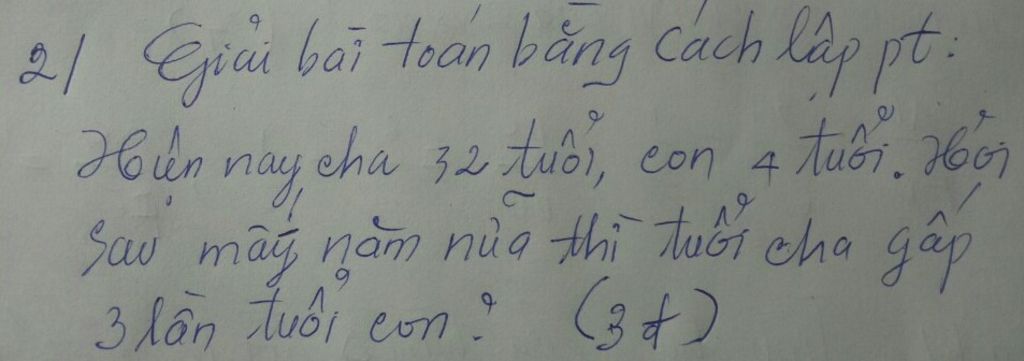 2/ Giải bài toán bằng cách lập pt:
Hiện nay, cha 32 tuổi, con 4 tuổi. Hỏi
sau mấy năm nữa thì tuổi cha gấp
3 lần tuổi con? (3đ)